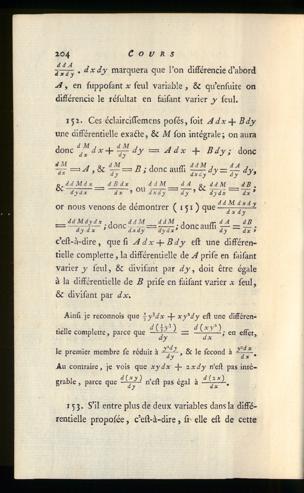 204 COURS
ddA/dxdy . dxdy marquera que l'on différencie d'abord
A, en supposant x seul variable, & qu'ensuite on
différencie le résultat en faisant varier y seul.
152. Ces éclaircissemens posés, soit Adx + Bdy
une différentielle exacte, & M son intégrale; on aura
donc dM/dx dx + dM/dy dy = Adx + Bdy; donc
dM/dx = A, & dM/dy = B; donc aussi ddM/dxdy dy = dA/dy dy,
& ddMdx/dydx = dBdx/dx, ou ddM/dxdy = dA/dy, & ddM/dydx = dB/dx;
or nous venons de démontrer (151) que ddMdxdy/dxdy
= ddMdydx/dydx; donc ddM/dxdy = ddM/dydx; donc aussi dA/dy = dB/dx;
c'est-à-dire, que si Adx + Bdy est une différen-
tielle complette, la différentielle de A prise en faisant
varier y seul, & divisant par dy, doit être égale
à la différentielle de B prise en faisant varier x seul,
& divisant par dx.
Ainsi je reconnois que ⅓y³dx + xy²dy est une différen-
tielle complette, parce que d(⅓y³)/dy = d(xy²)/dx; en effet,
le premier membre se réduit à y²dy/dy, & le second à y²dx/dx.
Au contraire, je vois que xydx + 2xdy n'est pas inté-
grable, parce que d(xy)/dy n'est pas égal à d(2x)/dx.
153. S'il entre plus de deux variables dans la diffé-
rentielle proposée, c'est-à-dire, si elle est de cette